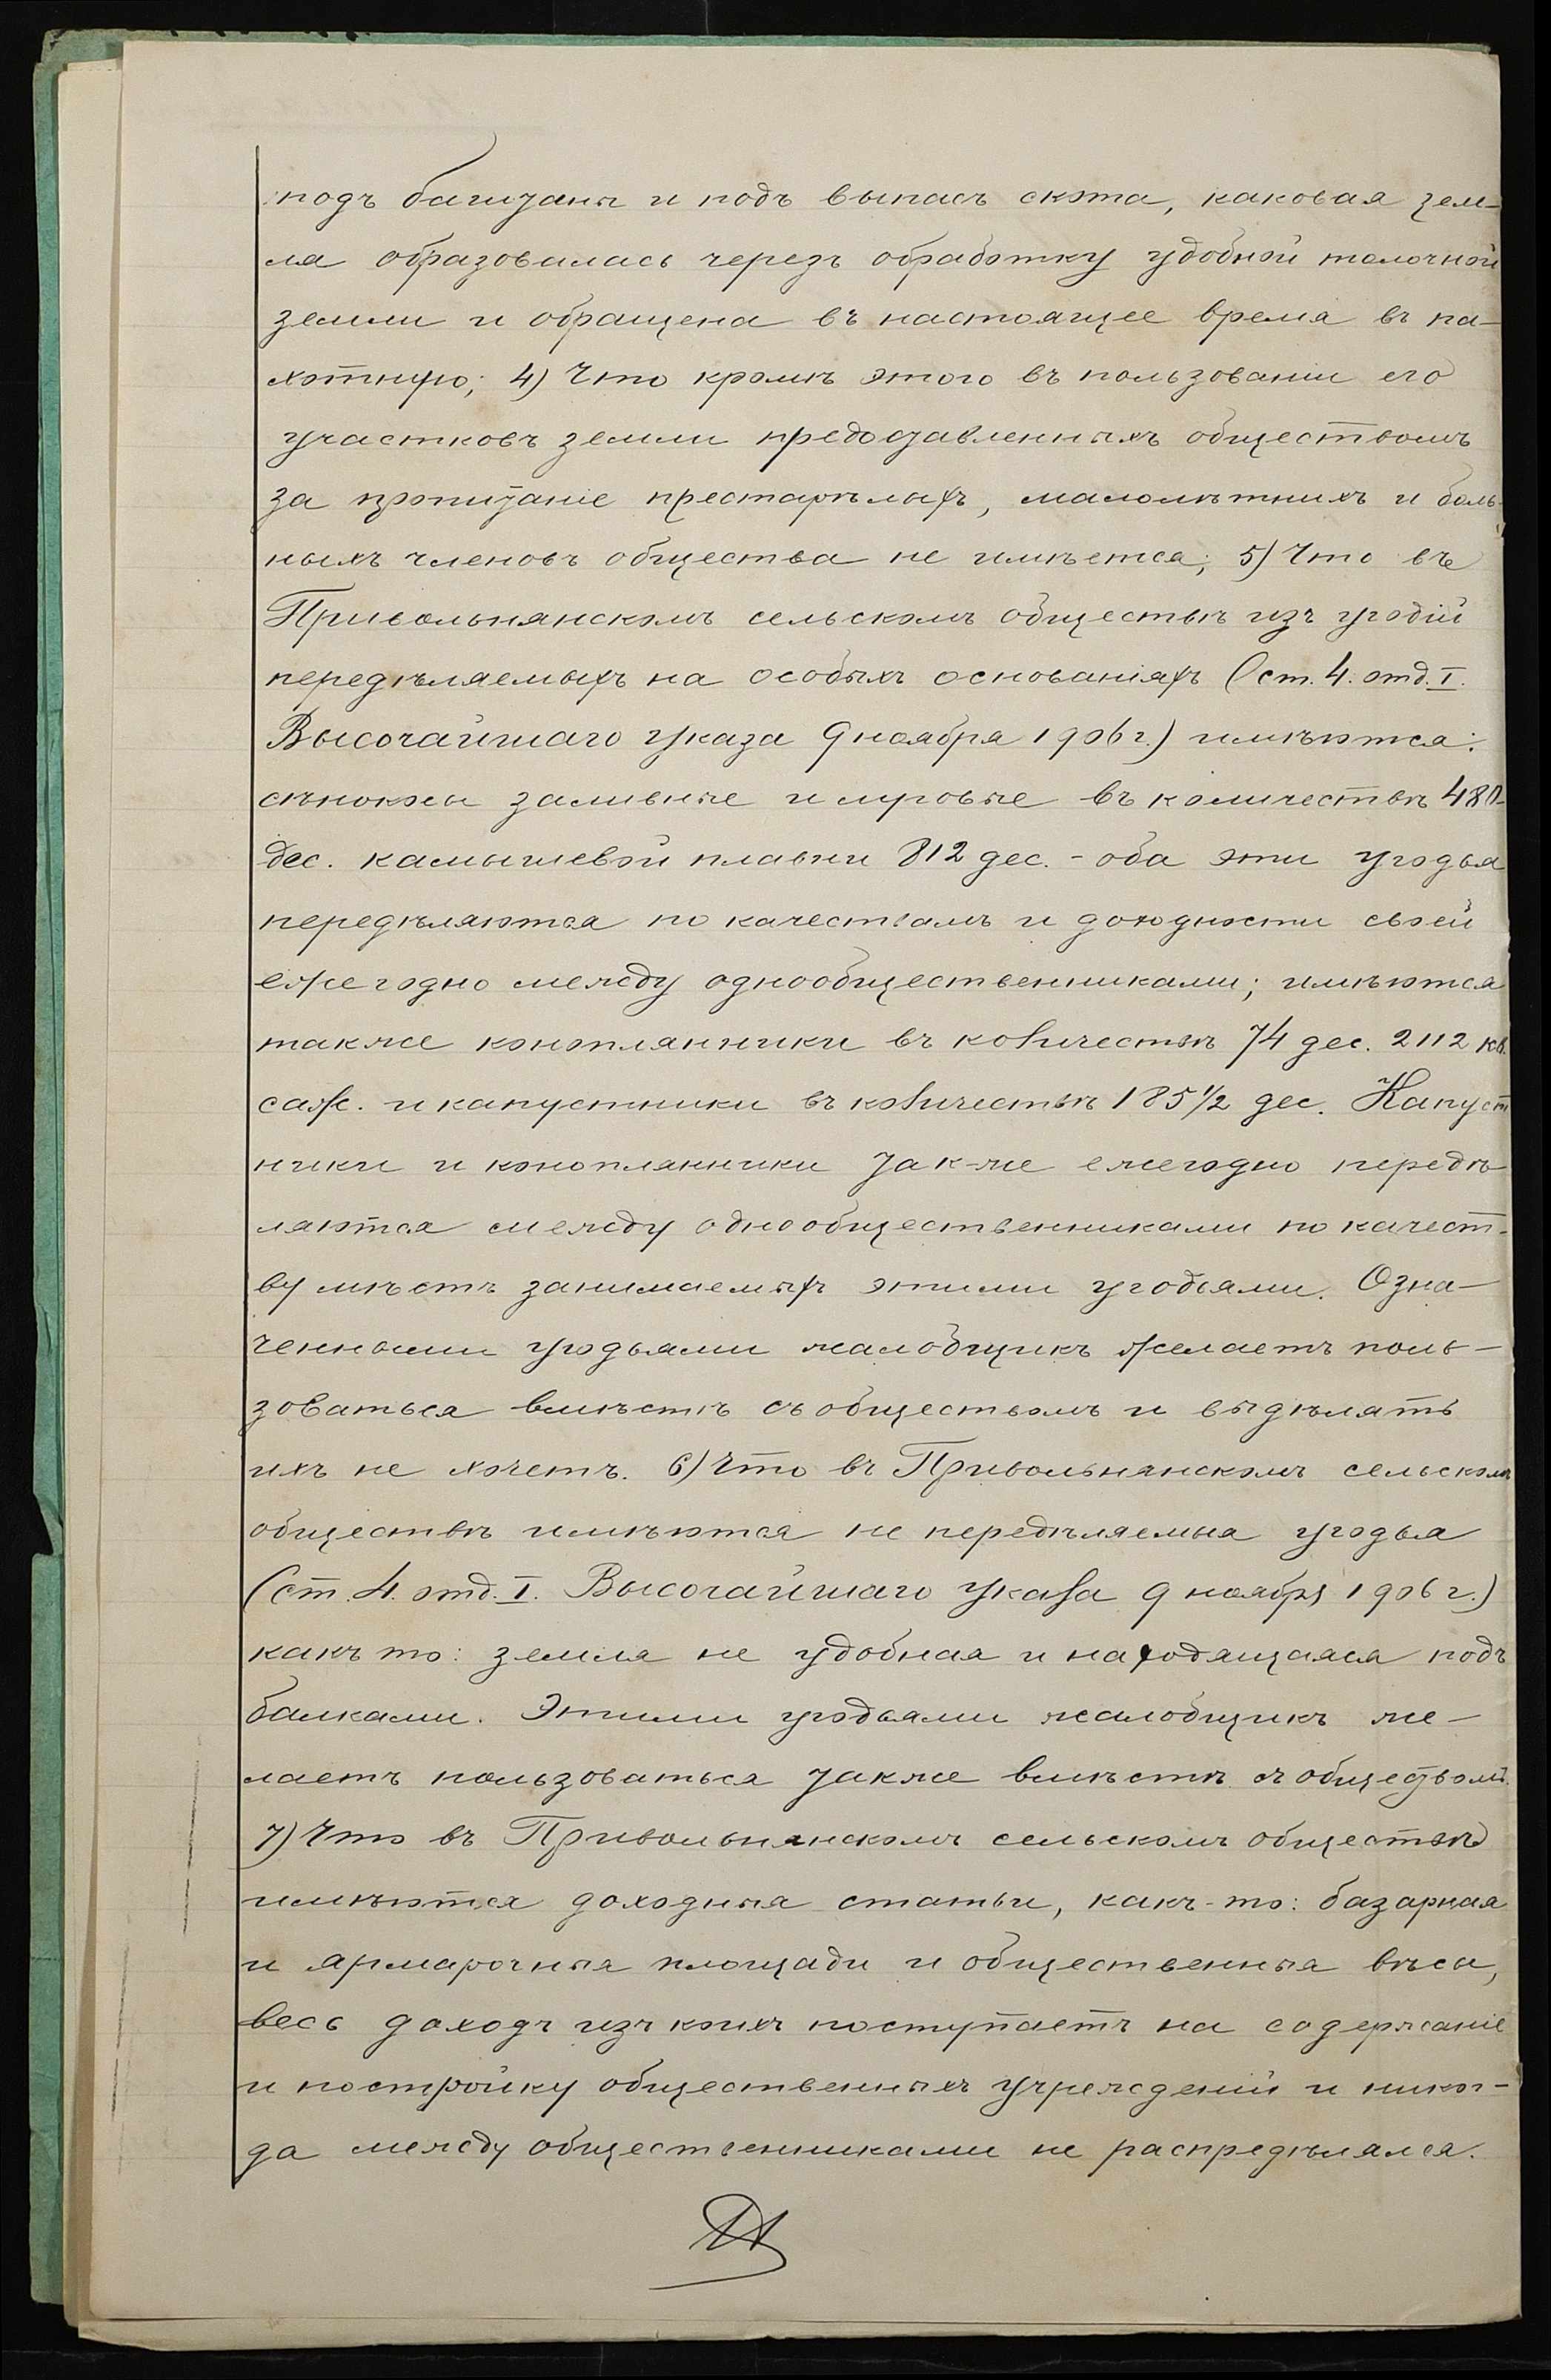 подъ баштаны и подъ выпасъ скота, каковая зем-
ля образовалась черезъ обработку удобной толочной
земли и обращена въ настоящее время въ па-
хотную; 4) Что кромѣ этого въ пользованіи его
участковъ земли предоставленныхъ обществомъ
за пропитаніе престарѣлыхъ, малолѣтнихъ и боль-
ныхъ членовъ общества не имѣется; 5) Что въ
Привольнянскомъ сельскомъ обществѣ изъ угодій
передѣляемыхъ на особыхъ основаніяхъ (ст. 4. отд. I.
Высочайшаго указа 9 ноября 1906 г.) имѣются:
сѣнокосы заливные и луговые въ количествѣ 480-
дес. камышевой плавни 812 дес. - оба эти угодья
передѣляются по качествамъ и доходности своей
ежегодно между однообщественниками; имѣются
также конопляники въ количествѣ 74 дес. 2112 кв.
саж. и капустники въ количествѣ 185 1/2 дес. Капуст
ники и конопляники так-же ежегодно передѣ-
ляются между однообщественниками по качест-
ву мѣстъ занимаемыхъ этими угодьями. Озна-
ченными угодьями жалобщикъ желаетъ поль-
зоваться вмѣстѣ съ обществомъ и выдѣлять
ихъ не хочетъ. 6) Что въ Привольнянскомъ сельскомъ
обществѣ имѣются не передѣляемыя угодья
(ст. 4. отд. I. Высочайшаго указа 9 ноября 1906 г.)
какъ то: земля не удобная и находящаяся подъ
балками. Этими угодьями жалобщикъ же-
лаетъ пользоваться также вмѣстѣ съ обществомъ.
7) Что въ Привольнянскомъ сельскомъ обществѣ
имѣются доходныя статьи, какъ-то: базарная
и ярмарочныя площади и общественныя вѣсы,
весь доходъ изъ коихъ поступаетъ на содержаніе
и постройку общественныхъ учрежденій и никог-
да между общественниками не распредѣлялся.